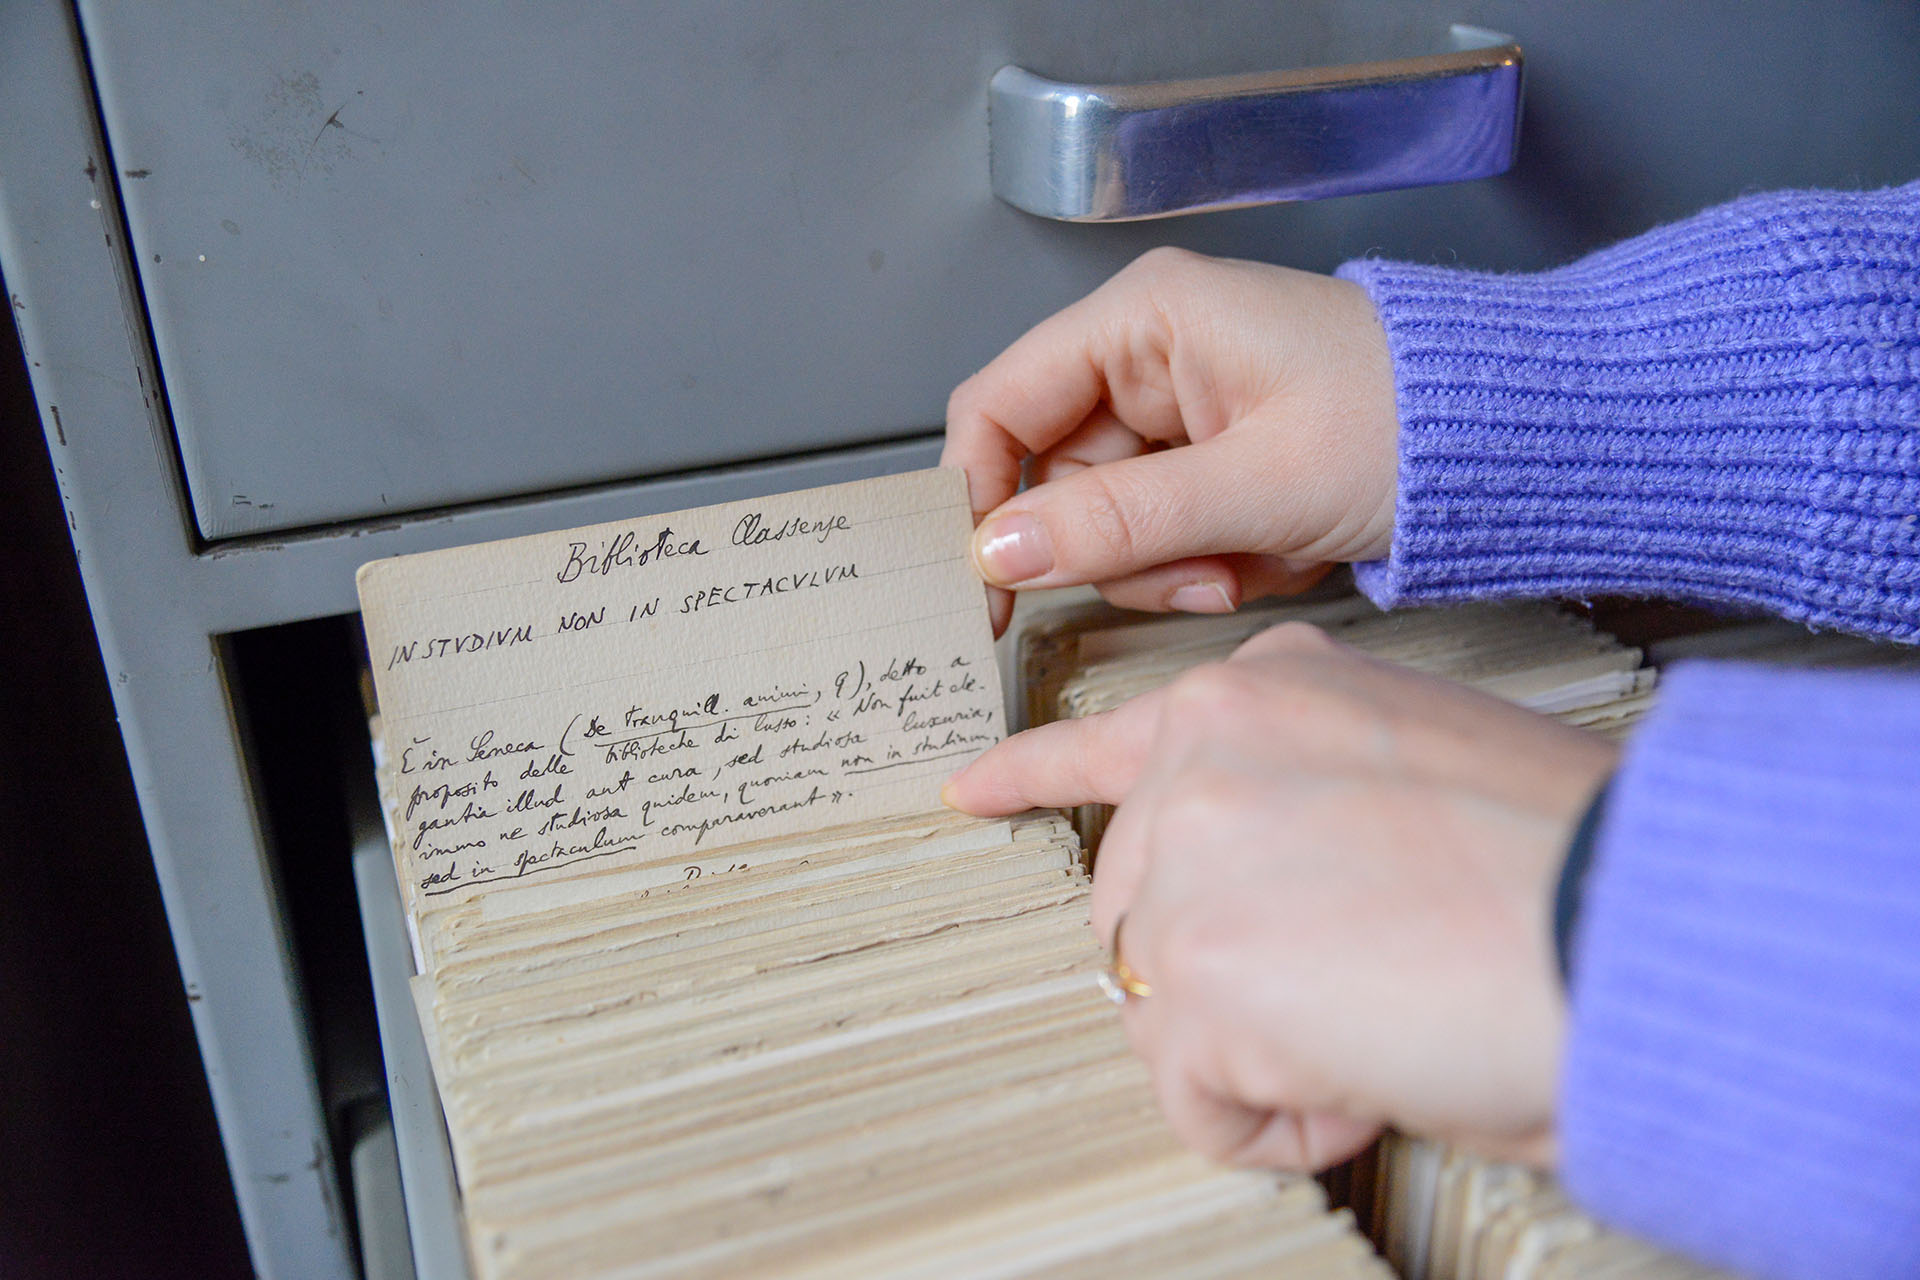 Biblioteca Classense
IN STVDIVM NON IN SPECTACVLVM
È in Seneca (De tranquill. animi, 9), detto a
proposito delle biblioteche di lusso: « Non fuit ele-
gantia illud aut cura, sed studiosa luxuria,
immo ne studiosa quidem, quoniam non in studium,
sed in spectaculum comparaverant ».